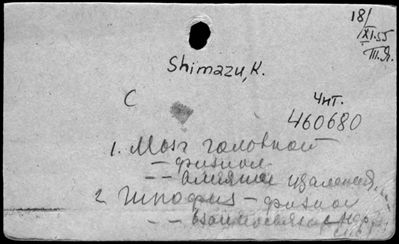 18/
XI.55
III.Я.
Shimazu, K.
С
Чит.
460680
1. Мозг головной
— физиол.
— — влияние удаления
2. Гипофиз — физиол
— — взаимосвязь с